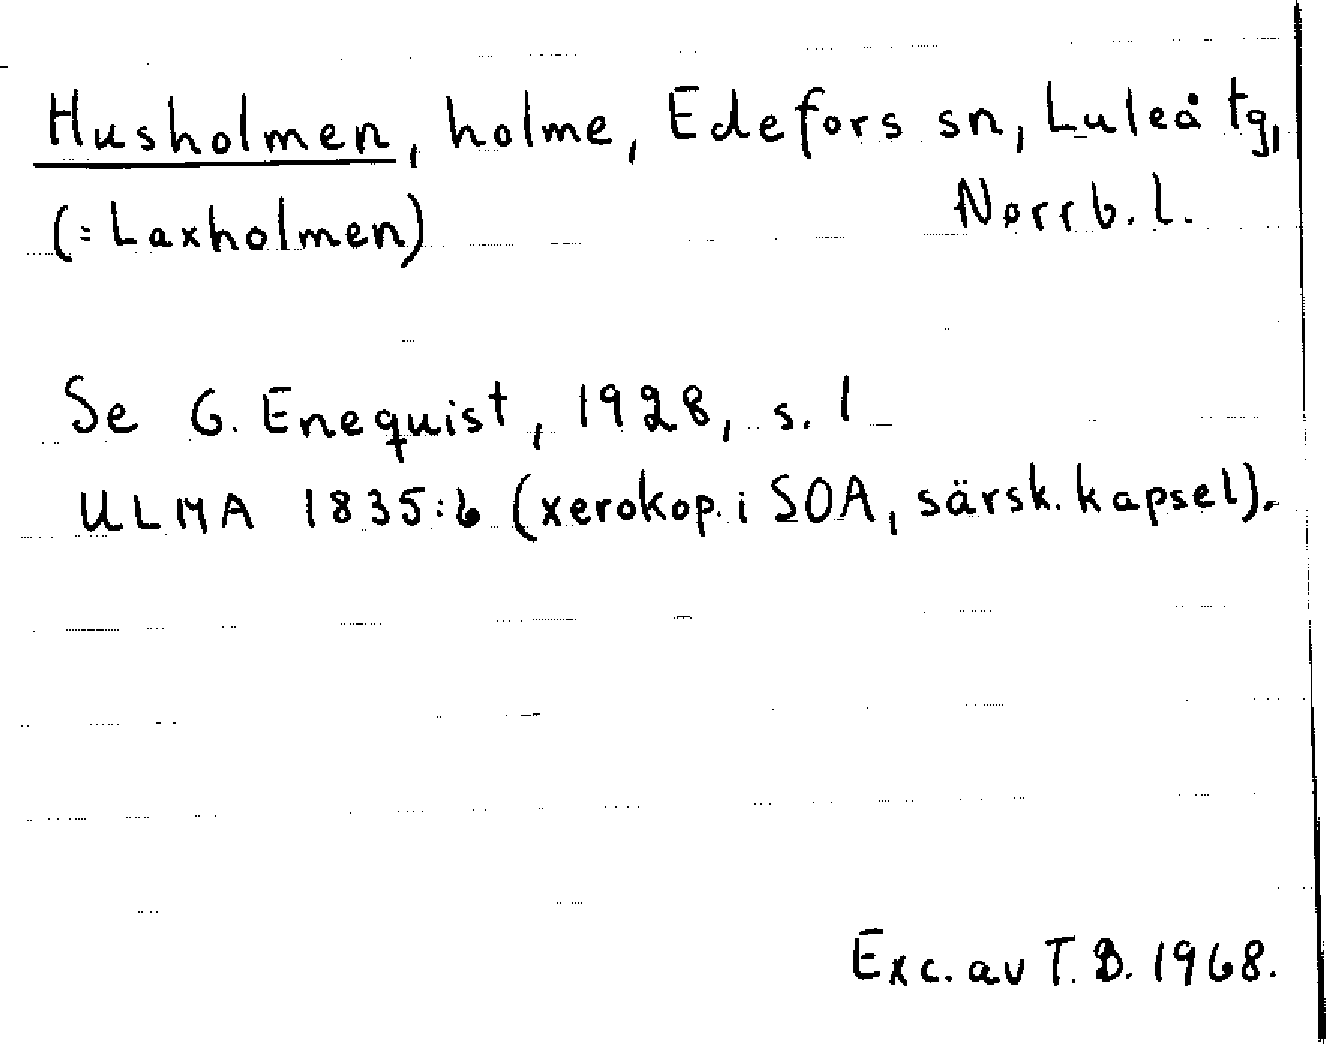 Husholmen, holme, Edefors sn, Luleå tg,
(=Laxholmen) Norrb. l.
Se G. Enequist, 1928, s. 1
ULMA 1835:6 (xerokop. i SOA, särsk. kapsel).
Exc. av T. B. 1968.